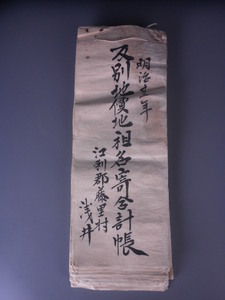 明治廿一年
反別地價地租名寄合計帳
江刺郡藤里村
浅井